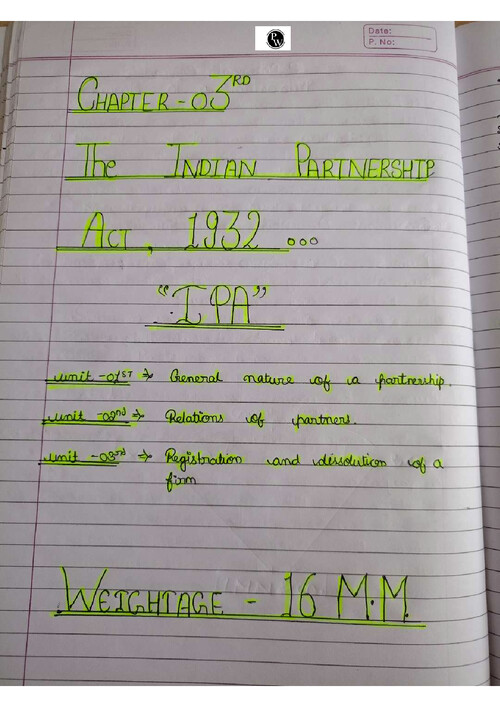 PW
Date:
P. No:
CHAPTER - 03RD
The INDIAN PARTNERSHIP
ACT, 1932 ...
"IPA"
unit - 01ST ⇒ General nature of a partnership.
unit - 02nd ⇒ Relations of partners.
unit - 03rd ⇒ Registration and dissolution of a
firm
WEIGHTAGE - 16 M.M.